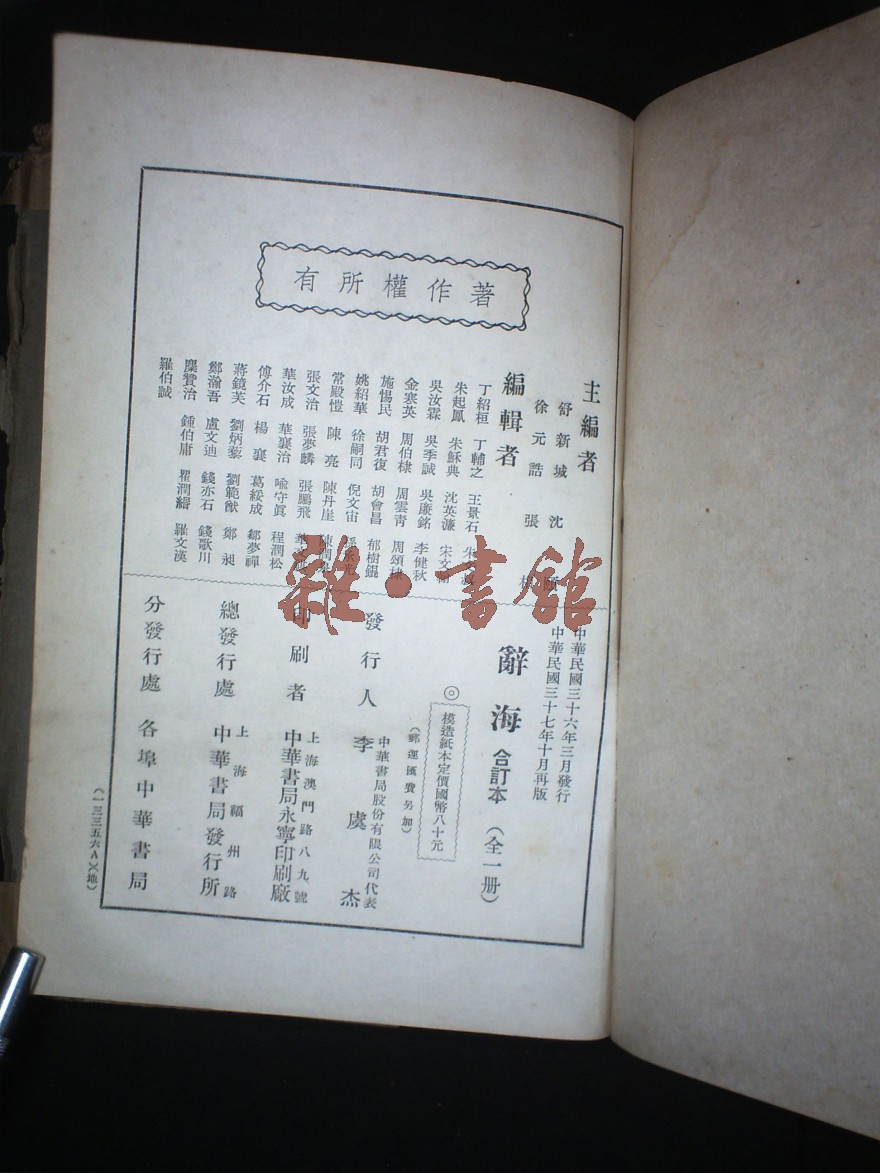 有所權作著
主編者
舒新城 沈
徐元誥 張
編輯者
丁紹桓 丁輔之 王景石
朱起鳳 朱穌典 沈英濂 宋文翰
吳汝霖 吳季誠 吳廉銘 李健秋
金寒英 周伯棣 周雲青 周頌棣
施惕民 胡君復 胡會昌 郁樹錕
姚紹華 徐嗣同 倪文宙
常殿愷 陳亮 陳丹崖 陳潤泉
張文治 張夢麟 張鵬飛
華汝成 華襄治 喻守眞 程潤松
傅介石 楊襄 葛綏成 鄒夢禪
蔣鏡芙 劉炳藜 劉範猷 鄭昶
鄭瀚吾 盧文迪 錢亦石 錢歌川
糜贊治 鍾伯庸 瞿潤緡 羅文漢
羅伯誠
中華民國三十六年三月發行
中華民國三十七年十月再版
辭海 合訂本 (全一册)
◎
模造紙本定價國幣八十元
(郵運匯費另加)
發行人
中華書局股份有限公司代表
李虞杰
印刷者
上海澳門路八九號
中華書局永寧印刷廠
總發行處
上海福州路
中華書局發行所
分發行處 各埠中華書局
(一三三五六A)(地)
雜·書館